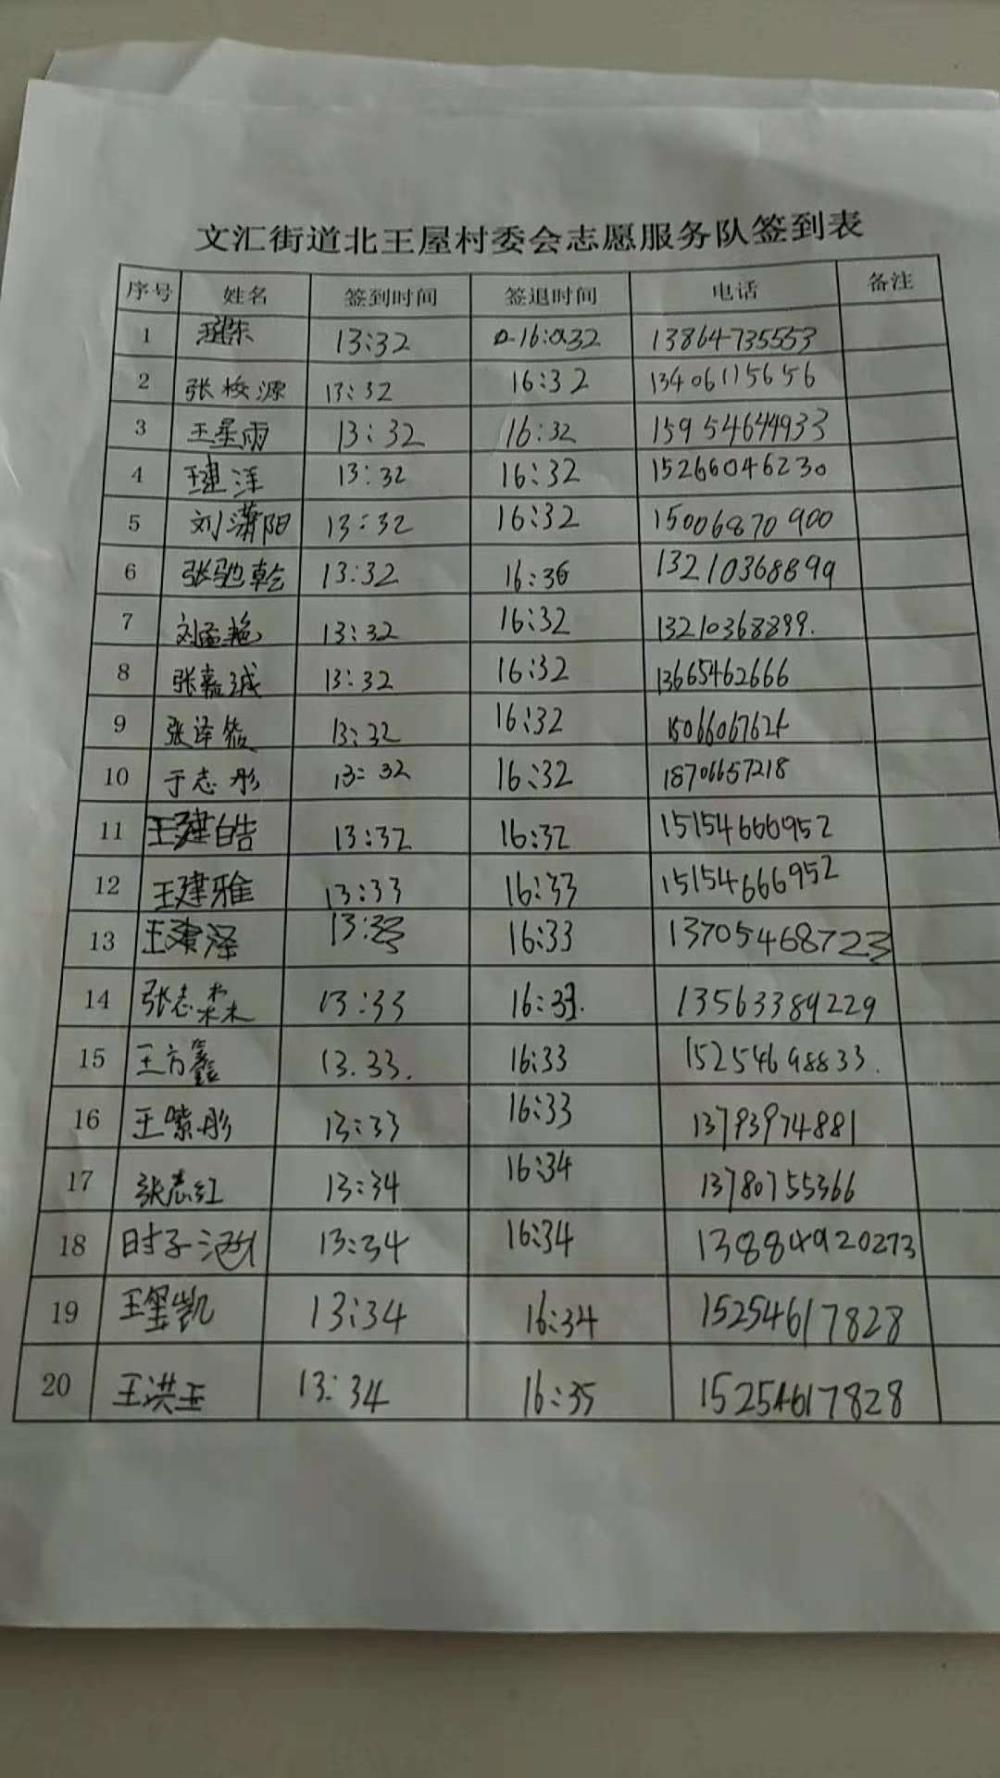 文汇街道北王屋村委会志愿服务队签到表
序号 姓名 签到时间 签退时间 电话 备注
1 13:32 16:32 13864735553
2 张梭源 13:32 16:32 13406115656
3 王星雨 13:32 16:32 15954644933
4 王建洋 13:32 16:32 15266046230
5 刘潇阳 13:32 16:32 15006870900
6 张驰乾 13:32 16:36 13210368899
7 刘孟艳 13:32 16:32 13210368899.
8 张嘉诚 13:32 16:32 13665462666
9 张泽 13:32 16:32
10 于志彤 13:32 16:32 18706657218
11 王建皓 13:32 16:32 15154666952
12 王建雅 13:33 16:33 15154666952
13 王泽 13:33 16:33 13705468723
14 张志森 13:33 16:33. 13563389229
15 王方鑫 13.33. 16:33 15254698833.
16 王彤 13:33 16:33 13793974881
17 张志红 13:34 16:34 13780755366
18 时子涵 13:34 16:34 13884920273
19 王玺凯 13:34 16:34 15254617828
20 王洪玉 13:34 16:35 15254617828